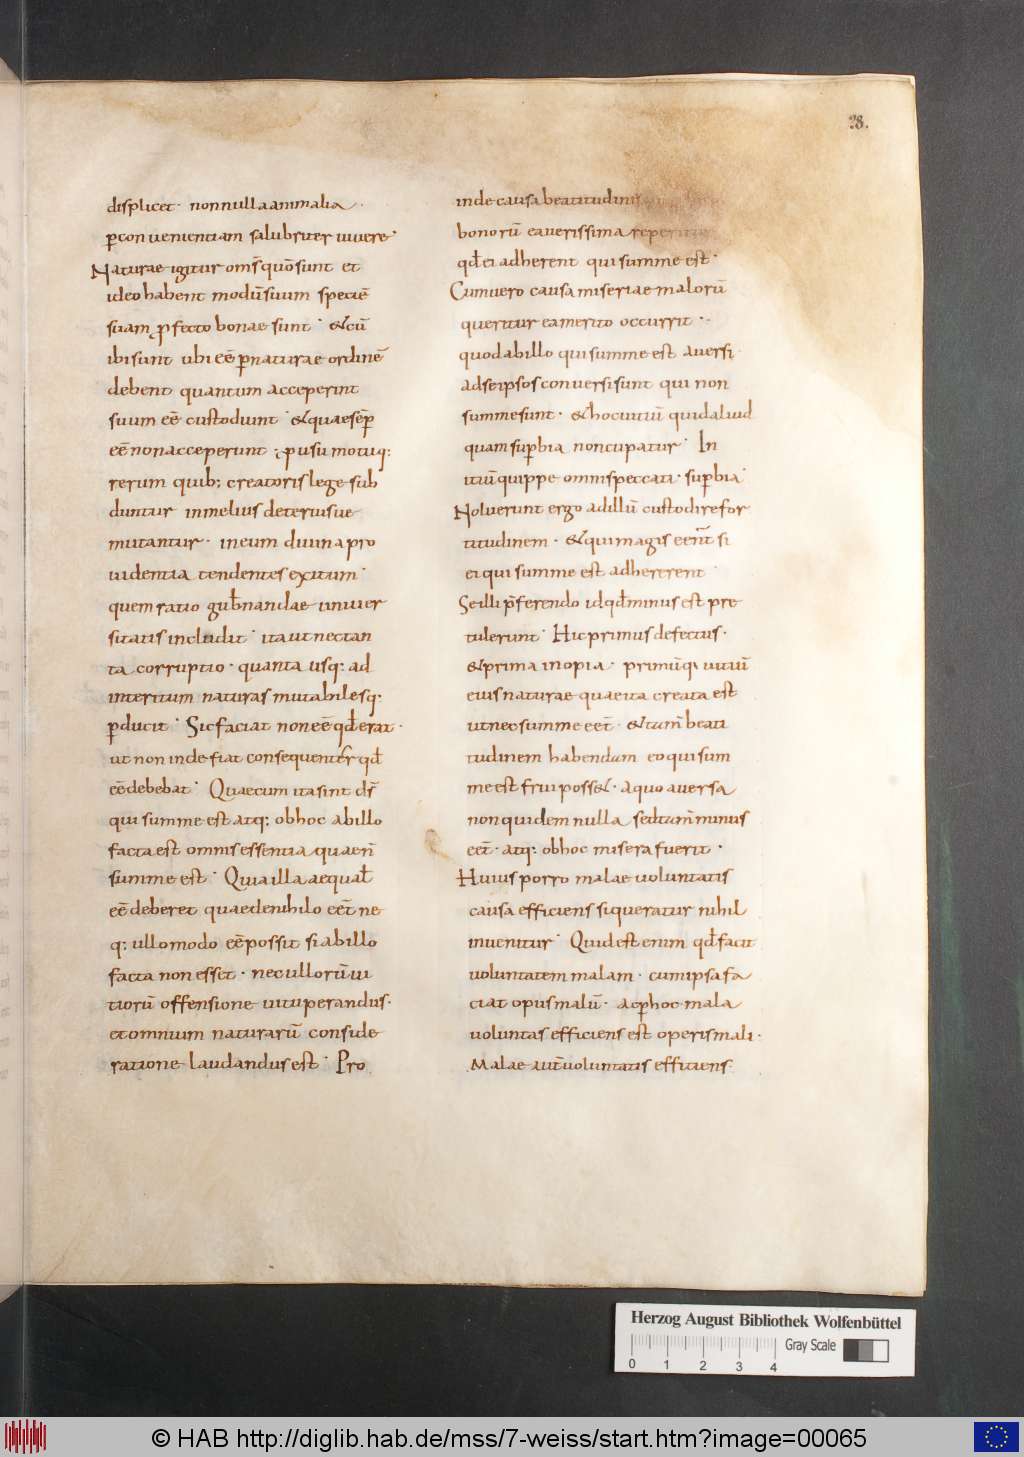 28.
displicet· nonnulla animalia·
p̲conuenientiam salubriter uiuere·
Naturae igitur om̄s quō sunt et
ideo habent modū suum speciē
suam ꝓfecto bonae sunt· &cū
ibi sunt ubi eē p̲naturae ordinē
debent quantum acceperint
suum eē custodiunt· &quae sēp̲
eē non acceperunt· ꝓ usu motuq:
rerum quib; creatoris lege sub
duntur in melius deteriusue
mutantur· in eum diuina pro
uidentia tendentes exitum·
quem ratio gub̄nandae uniuer
sitatis includit· ita ut nec tan
ta corruptio· quanta usq: ad
interitum naturas mutabiles q:
p̲ducit· Sic faciat non eē qđ erat·
ut non inde fiat consequenter qđ
eē debebat· Quae cum ita sint dš
qui summe est atq: ob hoc ab illo
facta est omnis essentia quae n̄
summe est· Quia illa aequal̄
eē deberet quae de nihilo eēt ne
q: ullo modo eē possit si ab illo
facta non esset· nec ullorū ui
tiorū offensione uituperandus·
et omnium naturarū conside
ratione laudandus est· Pro
inde causa beatitudinis
bonorū ea uerissima reperitur
qđ ei adherent qui summe est·
Cum uero causa miseriae malorū
queritur ea merito occurrit·
quod ab illo qui summe est auersi
ad se ipsos conuersi sunt qui non
summe sunt· &hoc uitiū quid aliud
quam sup̲bia noncupatur· In
itiū quippe omnis peccati· sup̲bia·
Noluerunt ergo ad illū custodire for
titudinem· &qui magis eent̄ si
ei qui summe est adhererent·
Se illi p̄ferendo id qđ minus est pre
tulerunt· Hic primus defectus·
&prima inopia· primūq; uitiū
eius naturae quae ita creata est
ut nec summe eēt· &tam̄ beati
tudinem habendam eo qui sum
me est frui poss&· a quo auersa
non quidem nulla sed tam̄ minus
eēt· atq: ob hoc misera fuerit·
Huius porro malae uoluntatis
causa efficiens si queratur nihil
inuenitur· Quid est enim qđ facit
uoluntatem malam· cum ipsa fa
ciat opus malū· ac p̲hoc mala
uoluntas efficiens est operis mali·
Malae aut̄ uoluntatis efficiens·
Herzog August Bibliothek Wolfenbüttel
Gray Scale
0 1 2 3 4
© HAB http://diglib.hab.de/mss/7-weiss/start.htm?image=00065